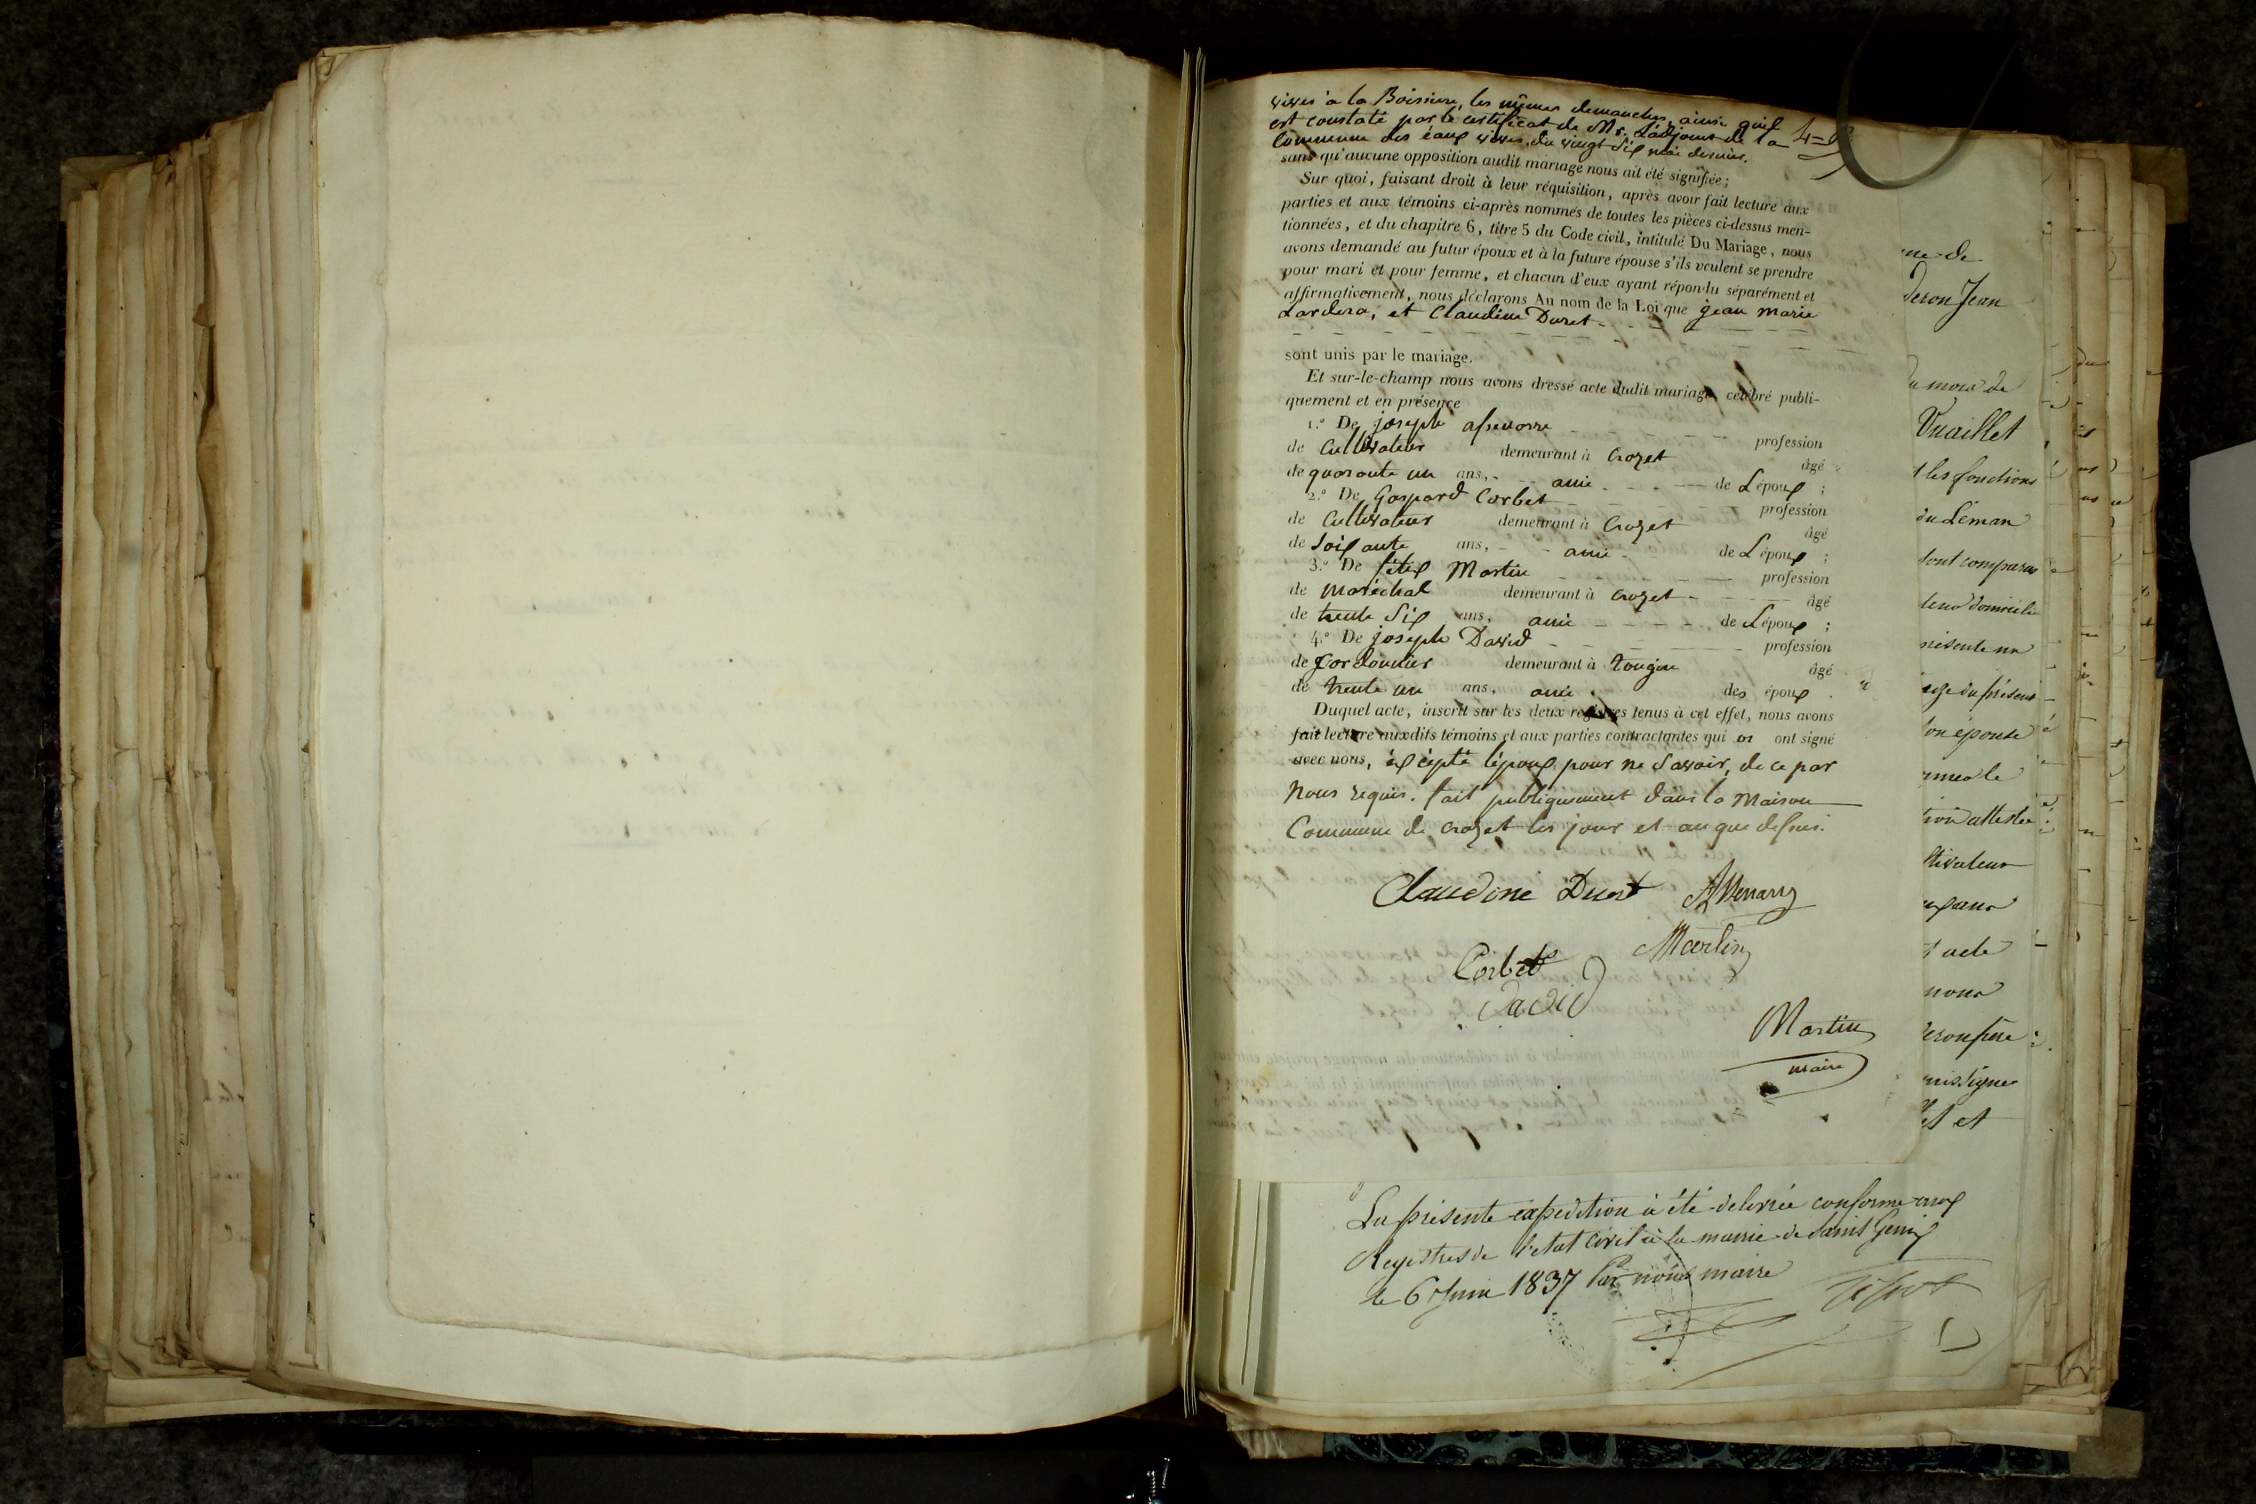 vives à la Boissiere, les mêmes dimanches, ainsi quil
est constaté par le certificat de Mr. Ladjoint de la
Commune des eaux vives, du vingt six mai dernier.
sans qu'aucune opposition audit mariage nous ait été signifiée;
Sur quoi, faisant droit à leur réquisition, après avoir fait lecture aux
parties et aux témoins ci-après nommés de toutes les pièces ci-dessus men-
tionnées, et du chapitre 6, titre 5 du Code civil, intitulé Du Mariage, nous
avons demandé au futur époux et à la future épouse s'ils veulent se prendre
pour mari et pour femme, et chacun d'eux ayant répondu séparément et
affirmativement, nous déclarons Au nom de la Loi que jean marie
Lardera, et Claudine Duret
sont unis par le mariage.
Et sur-le-champ nous avons dressé acte dudit mariage, célébré publi-
quement et en présence
1.° De joseph
profession
de Cultivateur demeurant à Crozet âgé
de quarante un ans, amie de Lépoux;
2.° De Gaspard Corbet profession
de Cultivateur demeurant à Crozet âgé
de Soixante ans, amie de Lépoux;
3.° De félix Martin profession
de maréchal demeurant à crozet âgé
de trente Six ans, amie de Lépoux;
4.° De joseph David profession
de Cordonnier demeurant à tougin âgé
de trente un ans, amie des époux
Duquel acte, inscrit sur les deux registres tenus à cet effet, nous avons
fait lecture auxdits témoins et aux parties contractantes qui ont signé
avec nous, éxcépté lépoux pour ne Savoir, de ce par
Nous requis. fait publiquement dans la Maison
Commune de crozet les jour et an que dessus.
Claudine Duret
Martin
Corbet
David
Martin
maire
La présente expedition à été delivrée conforme aux
Registres de l'etat civil à la mairie de Saint Genix
le 6 Juin 1837 Par nous maire
me de
deron Jean
du mois de
Vuaillet
t les fonctions
du Léman
sont comparus
présente un
son épouse
tion attestée
ltivateur
t acte
nous
deron père
et et